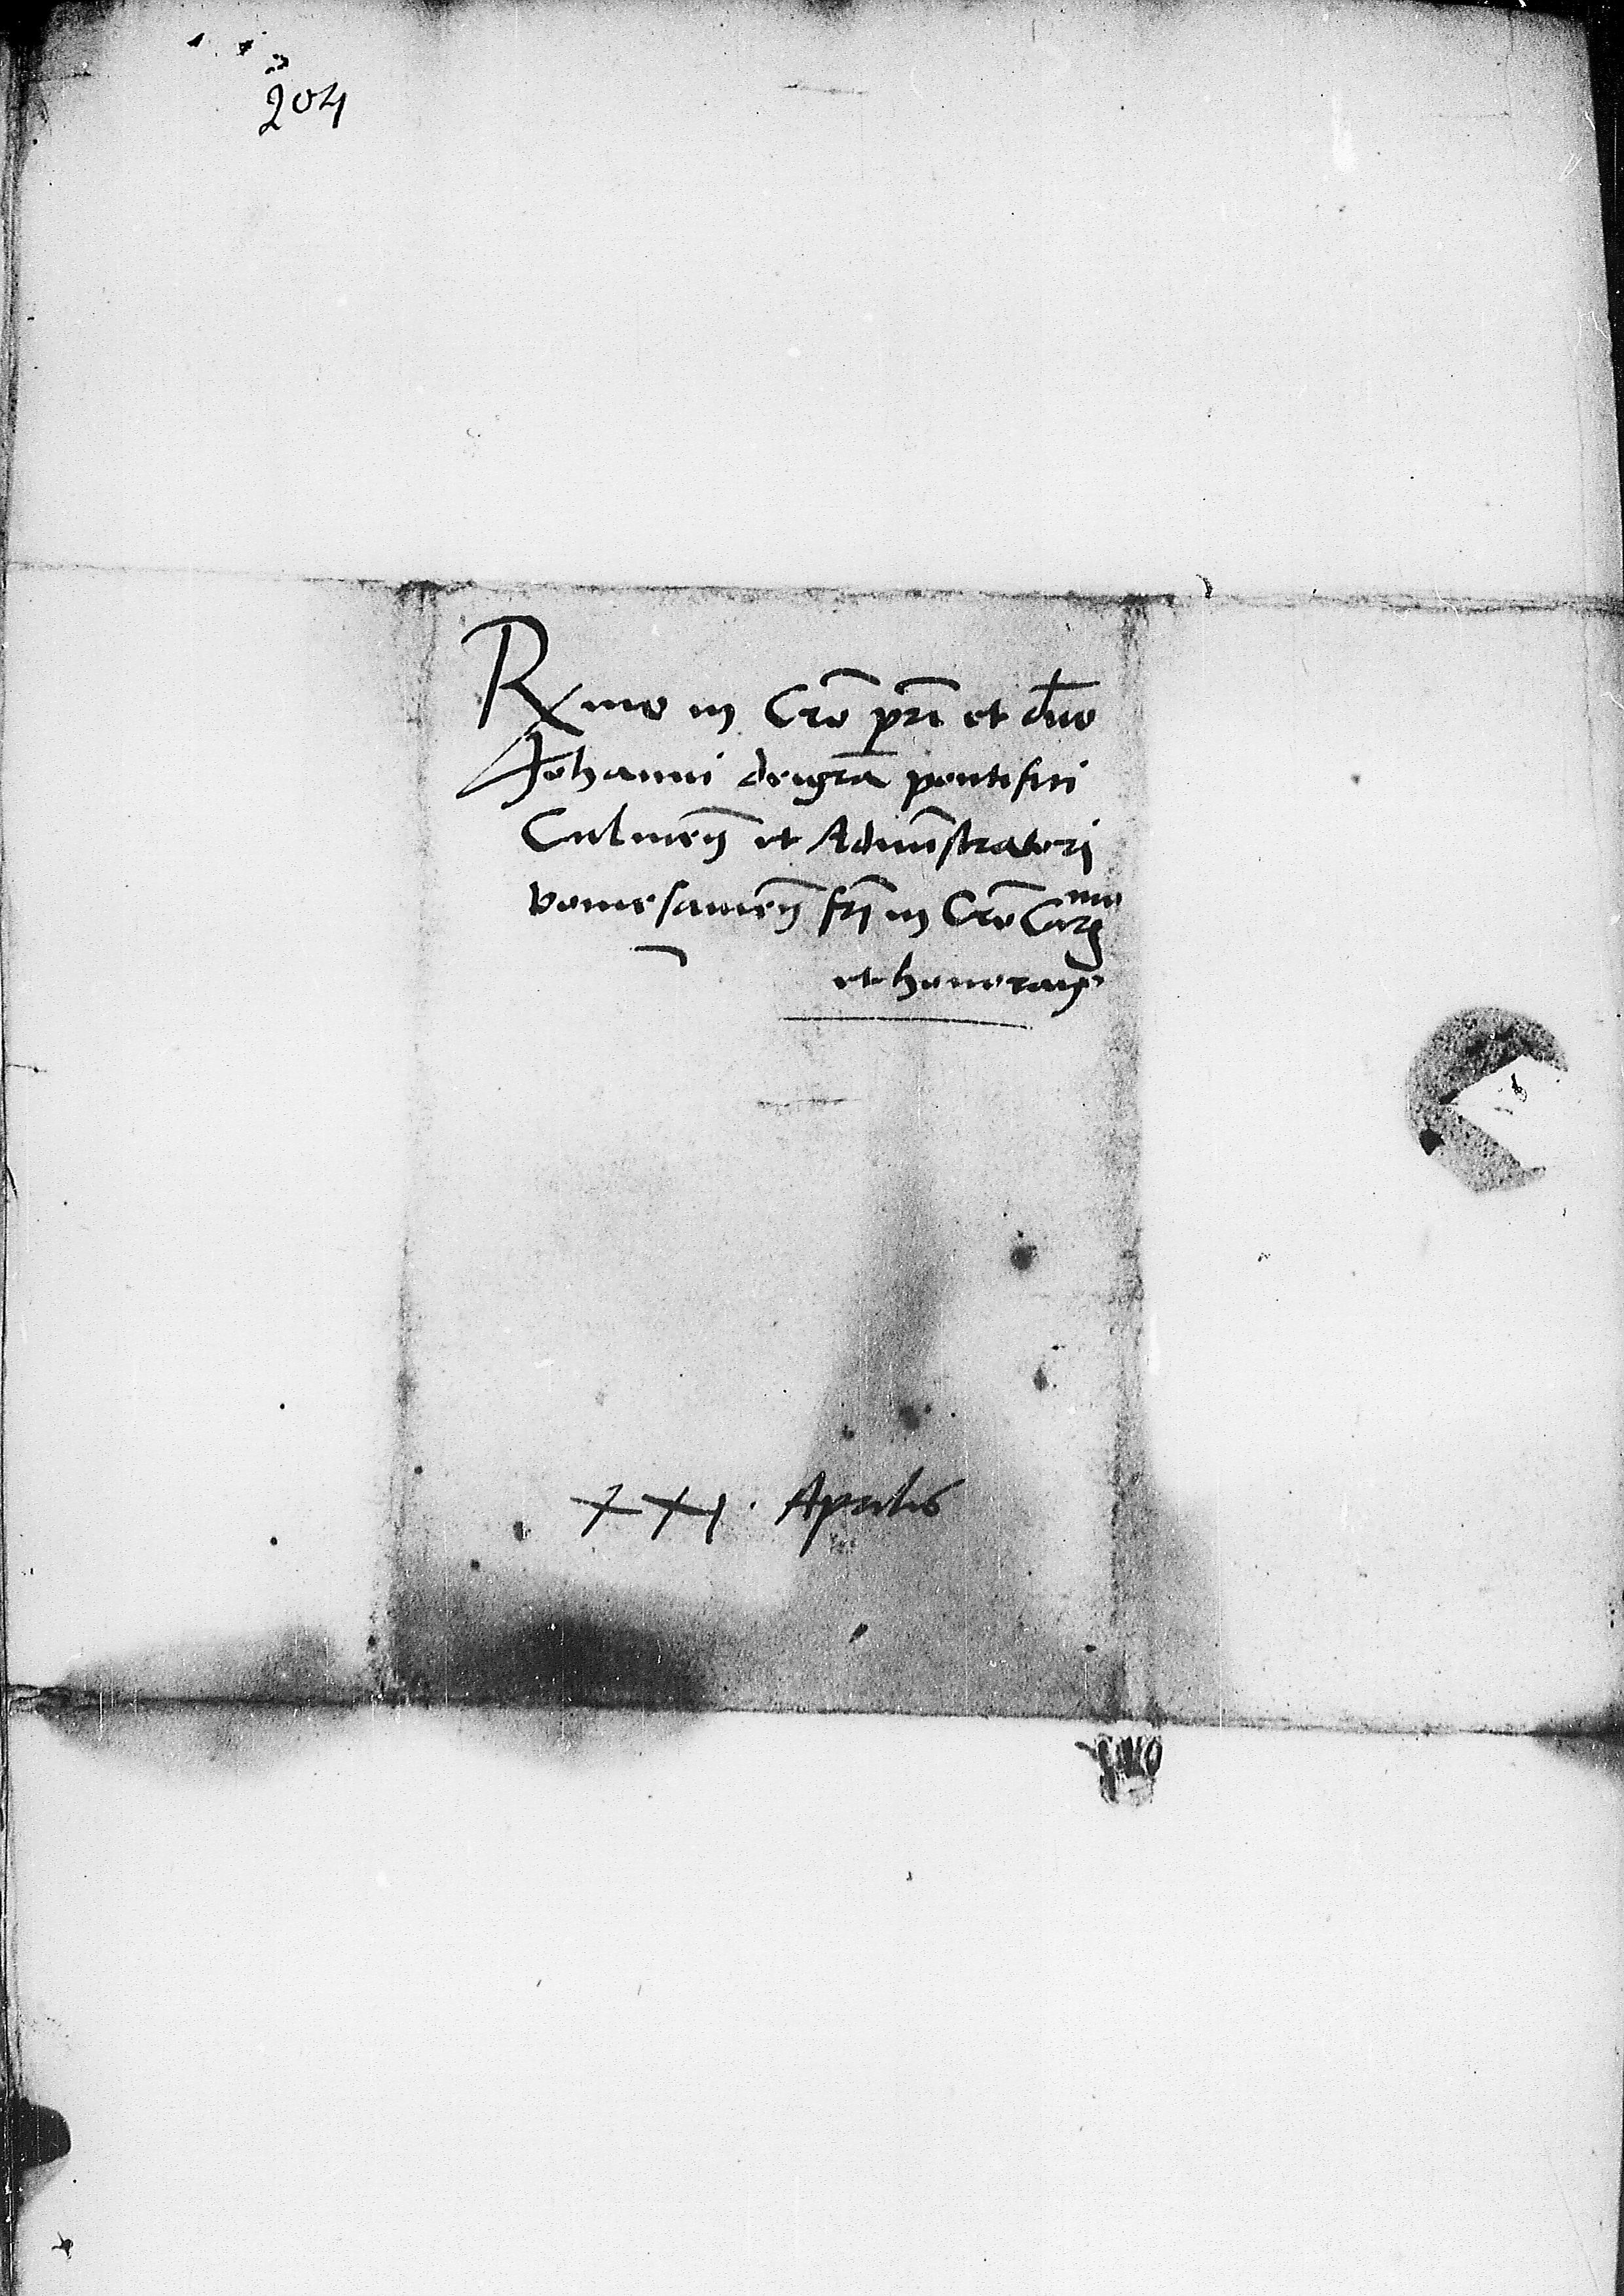 204
Rxmo in Cr̄o pr̄i et dn̄o
Johanni dei gr̄a pontifici
Culmeñ et Admin̄stratori
pomesanieñ fr̄i in Cr̄o Car̄mo
et honoran̄
XXI. Aprilis